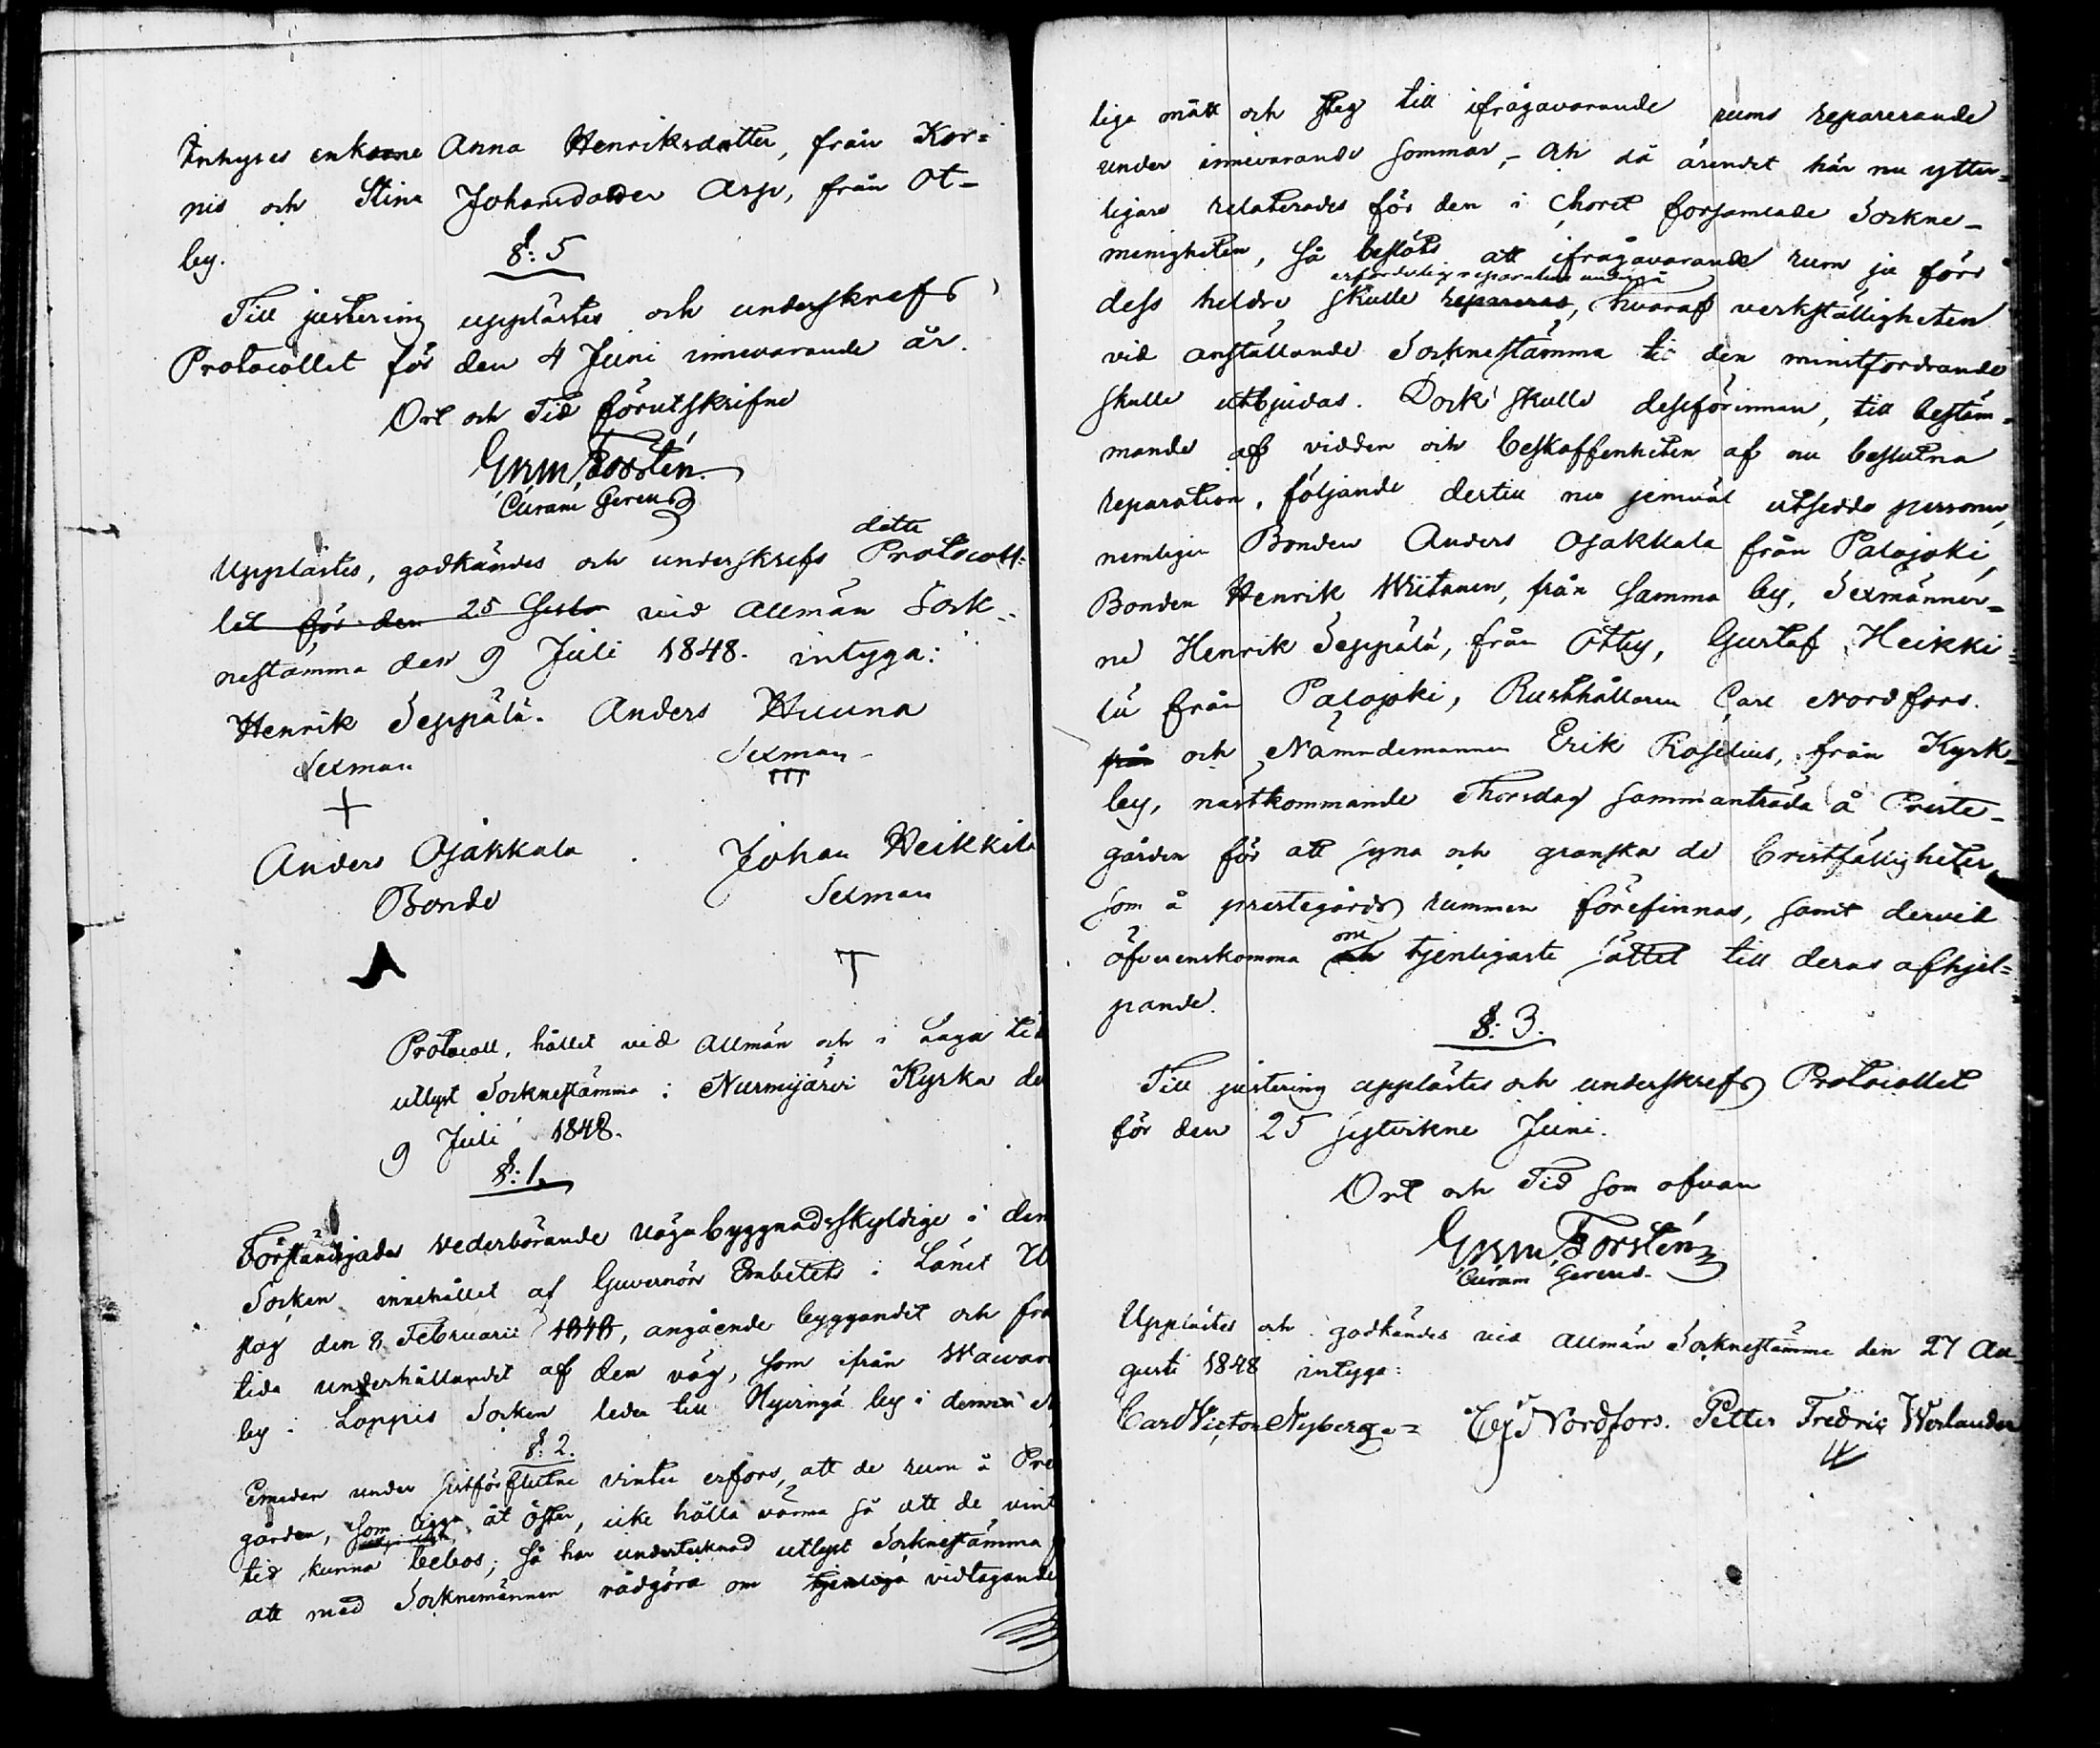 Inhyses enkorne Anna Henriksdotter, från Kor=
pis och Stina Johansdotter Asp, från Ot-
by.
§: 5
Till justering upplästes och underskrefs
Protocollet för den 4 Juni innevarande år.
Ort och Tid förutskrifne
Forstén
Curam Gerens
Upplästes, godkändes och underskrefs detta Protocol-
let för den 25 sistl. vid allmän Sock-
nestämma den 9 Juli 1848. intyga:
Henrik Seppälä. Anders Huuna
Sexman Sexman
Anders Ojakkala Johan Heikkilä
Bonde Sexman
Protocoll, hållet vid allmän och i Laga tid
utlyst Socknestämma i Nurmijärvi Kyrka de
9 Juli 1848.
§: 1.
Förständigades vederbörande vägabyggnadsskyldige i den
Socken innehållet af Guvernörs Embetets i Länet Ut
slag den 8 Februarii 1848, angående byggandet och fra
tida underhållandet af den väg, som ifrån Wawan
by i Loppis Socken leder till Hyvinga by i denna
§: 2.
Emedan under sistförflutne vinter erfors, att de rum å Pre
gården, som ligga åt öster, icke hålla värma så att de vint
tid kunna bebos; så har undertecknad utlyst Socknestämma
att med Socknemännen rådgöra om tjenliga vidtagande
liga mått och steg till ifrågavarande rums reparerande
under innevarande sommar,- och då ärendet här nu ytter-
ligare relaterades för den i Choret församlade Sockne-
menigheten, så beslöts att ifrågavarande rum ju förr
dess heldre skulle erforderlig reparation undergå repareras, hvaraf verkställigheten
vid anställande Socknestämma til den minstfordrande
skulle utbjudas. Dock skulle dessförinnan, till bestäm-
mande af vidden och beskaffenheten af nu beslutna
reparation, följande dertill nu jemväl utsedde personer,
nemligen Bonden Anders Ojakkala från Palojoki,
Bonden Henrik Wiitanen, från samma by, Sexmänner-
ne Henrik Seppälä, från Otby, Gustaf Heikki-
lä från Palojoki, Rusthållaren Carl Nordfors.
från och Nämndemannen Erik Roselius, från Kyrk-
by, nästkommande Thorsdag sammanträda å Preste-
gården för att syna och granska de bristfälligheter,
som å prestegårds rummen förefinnas, samt dervid
öfverenskomma och om tjenligaste sättet till deras afhjel=
pande.
§: 3.
Till justering upplästes och underskrefs Protocollet
för den 25 sistvikne Juni.
Ort och Tid som ofvan
Forstén
Curam Gerens.
Upplästes och godkändes vid allmän Socknestämma den 27 Au-
gusti 1848 intyga:
Carl Victor Nyberg. CG Nordfors. Petter Fredric Werlander